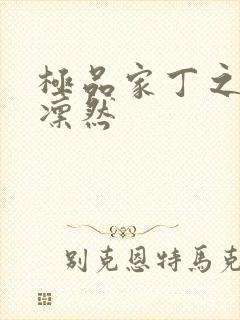 極品家丁之
凜然
别克恩特馬克